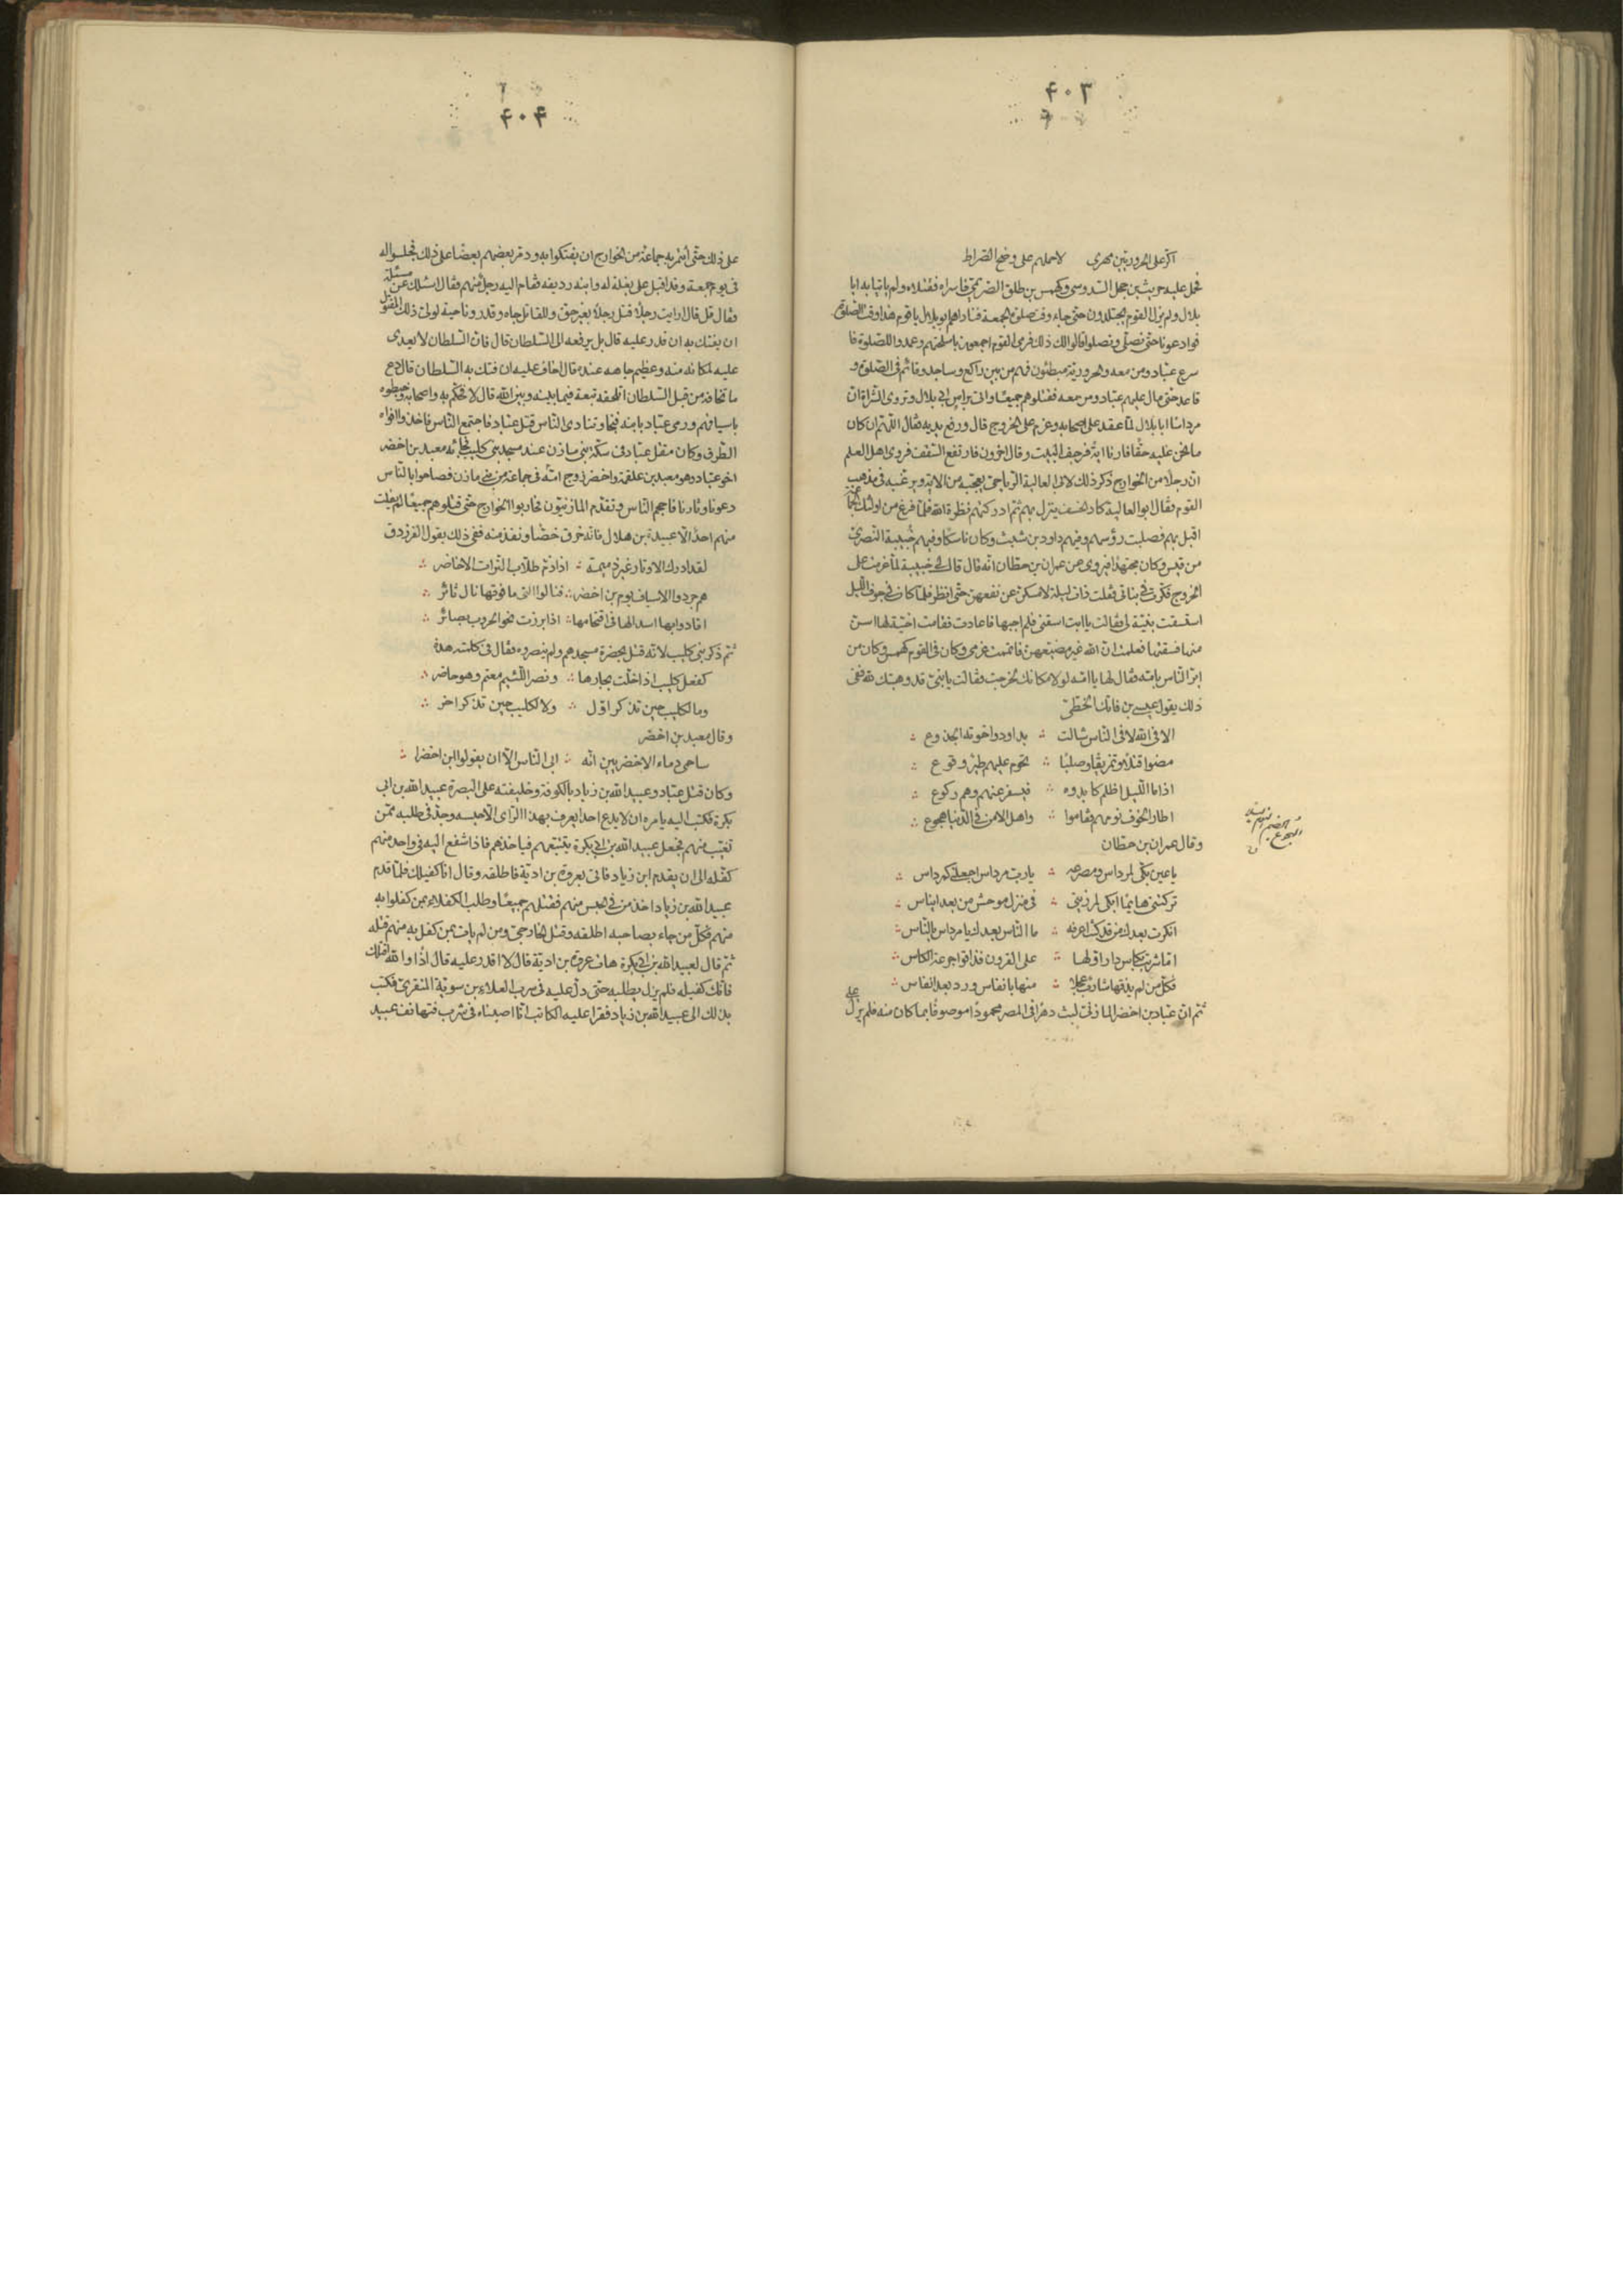 ۴۰۳
اكرّ على الحرورييّن مهرى لاحملهم على وضح الصّراط
فحمل عليه حريث بن حجل السّدوسى وكهمس بن طلق الصّريمىّ فاسراه فقتلاه ولم ياتيا به ابا
بلال ولم يزل القوم يجتلدون حتى جاء وقت صلوة الجمعة فناداهم ابو بلال يا قوم هذا وقت الصّلوة
فوادعونا حتى نصلّى وتصلوا قالوا لك ذلك فرمى القوم اجمعون باسلحتهم وعمدوا للصّلوة فا
سرع عبّاد ومن معه والحروريّة مبطئون فهم من بين راكع وساجد وقائم فى الصّلوة و
قاعد حتى مال عليهم عبّاد ومن معه فقتلوهم جميعًا واتى براس ابى بلال وتروى الشّراة انّ
مرداسًا ابا بلال لمّا عقد على اصحابه وعزم على الخروج قال ورفع يديه فقال اللّهمّ ان كان
ما نحن عليه حقًّا فارنا اية فرجف البيت وقال اخرون فارتفع السّقف فروى اهل العلم
انّ رجلًا من الخوارج ذكر ذلك لابى العالية الرياحىّ يعجّبه من الاية ويرغبه فى مذهب
القوم فقال ابو العالية كاد الخسف ينزل بهم ثمّ ادركتهم نظرة الله فلمّا فرغ من اولئك الجماعة
اقبل بهم فصلبت رؤسهم وفيهم داود بن شبث وكان ناسكًا وفيهم حُبيبة النصرىّ
من قيس وكان مجتهدًا فيروى عن عمران بن حطّان انّه قال قال لى حبيبة لمّا عزمت على
الخروج فكّرت فى بناتى فقلت ذات ليلة لامسكنّ عن نفقهنّ حتّى انظر فلمّا كان فى جوف اللّيل
استسقت بنيّة لى فقالت يا ابت اسقنى فلم اجبها فاعادت فقامت اخيّة لها اسنّ
منها فسقتها فعلمت انّ الله غير مضيّعهنّ فاتممت عزمى وكان فى القوم كهمس وكان من
ابرّ النّاس بامّه فقال لها يا امّه لولا مكانك لخرجت فقالت يا بنىّ قد وهبتك لله ففى
ذلك يقول عيسى بن فاتك الخطّىّ
الا فى الله لا فى النّاس شالت بداود واخوته الجذوع
مضوا قتلًا وتمزيقًا وصلبًا تحوم عليهم طيرٌ وقوع
اذا ما اللّيل اظلم كابدوه فيسفر عنهم وهم ركوع
اطار الخوف نومهم فقاموا واهل الامن فى الدّنيا هجوع
وقال عمران بن حطّان
يا عين بكّى لمرداس ومصرعه يا ربّ مرداس اجعلنى كمرداس
تركتنى هايمًا ابكى لمرزيتى فى منزل موحش من بعد ايناس
انكرت بعدك من قد كنت اعرفه ما النّاس بعدك يا مرداس بالنّاس
امّا شربت بكاس دار اوّلها على القرون فذاقوا جرعة الكاس
فكلّ من لم يذقها شارب عجلا منها بانفاس ورد بعد انفاس
ثمّ انّ عبّاد بن اخضر المازنىّ لبث دهرًا فى المصر محمودًا موصوفًا بما كان منه فلم يزل
على
۴۰۴
على ذلك حتّى ائتمر به جماعة من الخوارج ان يفتكوا به وذمّر بعضهم بعضًا على ذلك فجلسوا له
فى يوم جمعة وقد اقبل على بغلة له وابنه رديفه فقام اليه رجل منهم فقال اسئلك عن مسئلة
فقال قل قال ارايت رجلًا قتل رجلًا بغير حقّ وللقاتل جاه وقدر وناحية لولىّ ذلك المقتول
ان يفتك به ان قدر عليه قال بل يرفعه الى السّلطان قال فان السّلطان لا يعدى
عليه لمكانه منه وعظيم جاهه عنده قال اخاف عليه ان فتك به السّلطان قال دع
ما تخافه من قبل السّلطان اتلحقه تبعة فيما بينه وبين الله قال لا فحكّم به واصحابه وخبطوه
باسيافهم ورمى عبّاد بابنه فنجا وتنادى النّاس قتل عبّاد فاجتمع النّاس فاخذوا افواه
الطّرق وكان مقتل عبّاد فى سكّة بنى مازن عند مسجد بنى كليب فجائه معبد بن اخضر
اخو عبّاد وهو معبد بن علقمة واخضر زوج امّه فى جماعة من بنى مازن فصاحوا بالنّاس
دعونا وثارنا فاحجم النّاس وتقدّم المازنيّون فحاربوا الخوارج حتّى قتلوهم جميعًا لم يفلت
منهم احدٌ الّا عبيدة بن هلال فانّه خرق خصًّا ونفذ منه ففى ذلك يقول الفرزدق
لقد ادرك الاوتار غير ذميمة اذا ذمّ طلّاب التّرات الاخاضر
هم جردوا الاسياف يوم بن اخضر فنالوا الّتى ما فوقها نال ثائر
اقادوا بها اسدًا لها فى اقتحامها اذا برزت نحو الحروب بصائر
ثمّ ذكر بنى كليب لانّه قتل بحضرة مسجدهم ولم ينصروه فقال فى كلمته هذه
كفعل كليب اذ اخلّت بجارها ونصر اللّئيم معتم وهو حاضر
وما لكليب حين تذكر اوّل ولا لكليب حين تذكر اخر
وقال معبد بن اخضر
ساحمى دماء الاخضريين انّه ابى النّاس الّا ان يقولوا ابن اخضرا
وكان قتل عبّاد وعبيد الله بن زياد بالكوفة وخليفته على البصرة عبيد الله بن ابى
بكرة فكتب اليه يامره ان لا يدع احدا يعرف بهذا الرّاى الّا حبسه وجدّ فى طلبه ممّن
تغيّب منهم فجعل عبيد الله بن ابى بكرة يتتبّعهم فياخذهم فاذا شفع اليه فى واحد منهم
كفّله الى ان يقدم ابن زياد فاتى بعروة بن اديّة فاطلقه وقال انا كفيلك فلمّا قدم
عبيد الله بن زياد اخذ من فى الحبس منهم فقتلهم جميعًا وطلب الكفلاء بمن كفلوا به
منهم فكلّ من جاء بصاحبه اطلقه وقتل الخارجىّ ومن لم يات بمن كفل به منهم قتله
ثمّ قال لعبيد الله بن ابى بكرة هات عروة بن اديّة قال لا اقدر عليه قال اذًا والله اقتلك
فانّك كفيله فلم يزل يطلبه حتى دلّ عليه فى سرب العلاء بن سويّة المنقرىّ فكتب
بذلك الى عبيد الله بن زياد فقرا عليه الكاتب انّا اصبناه فى شرب فتهانف عبيد